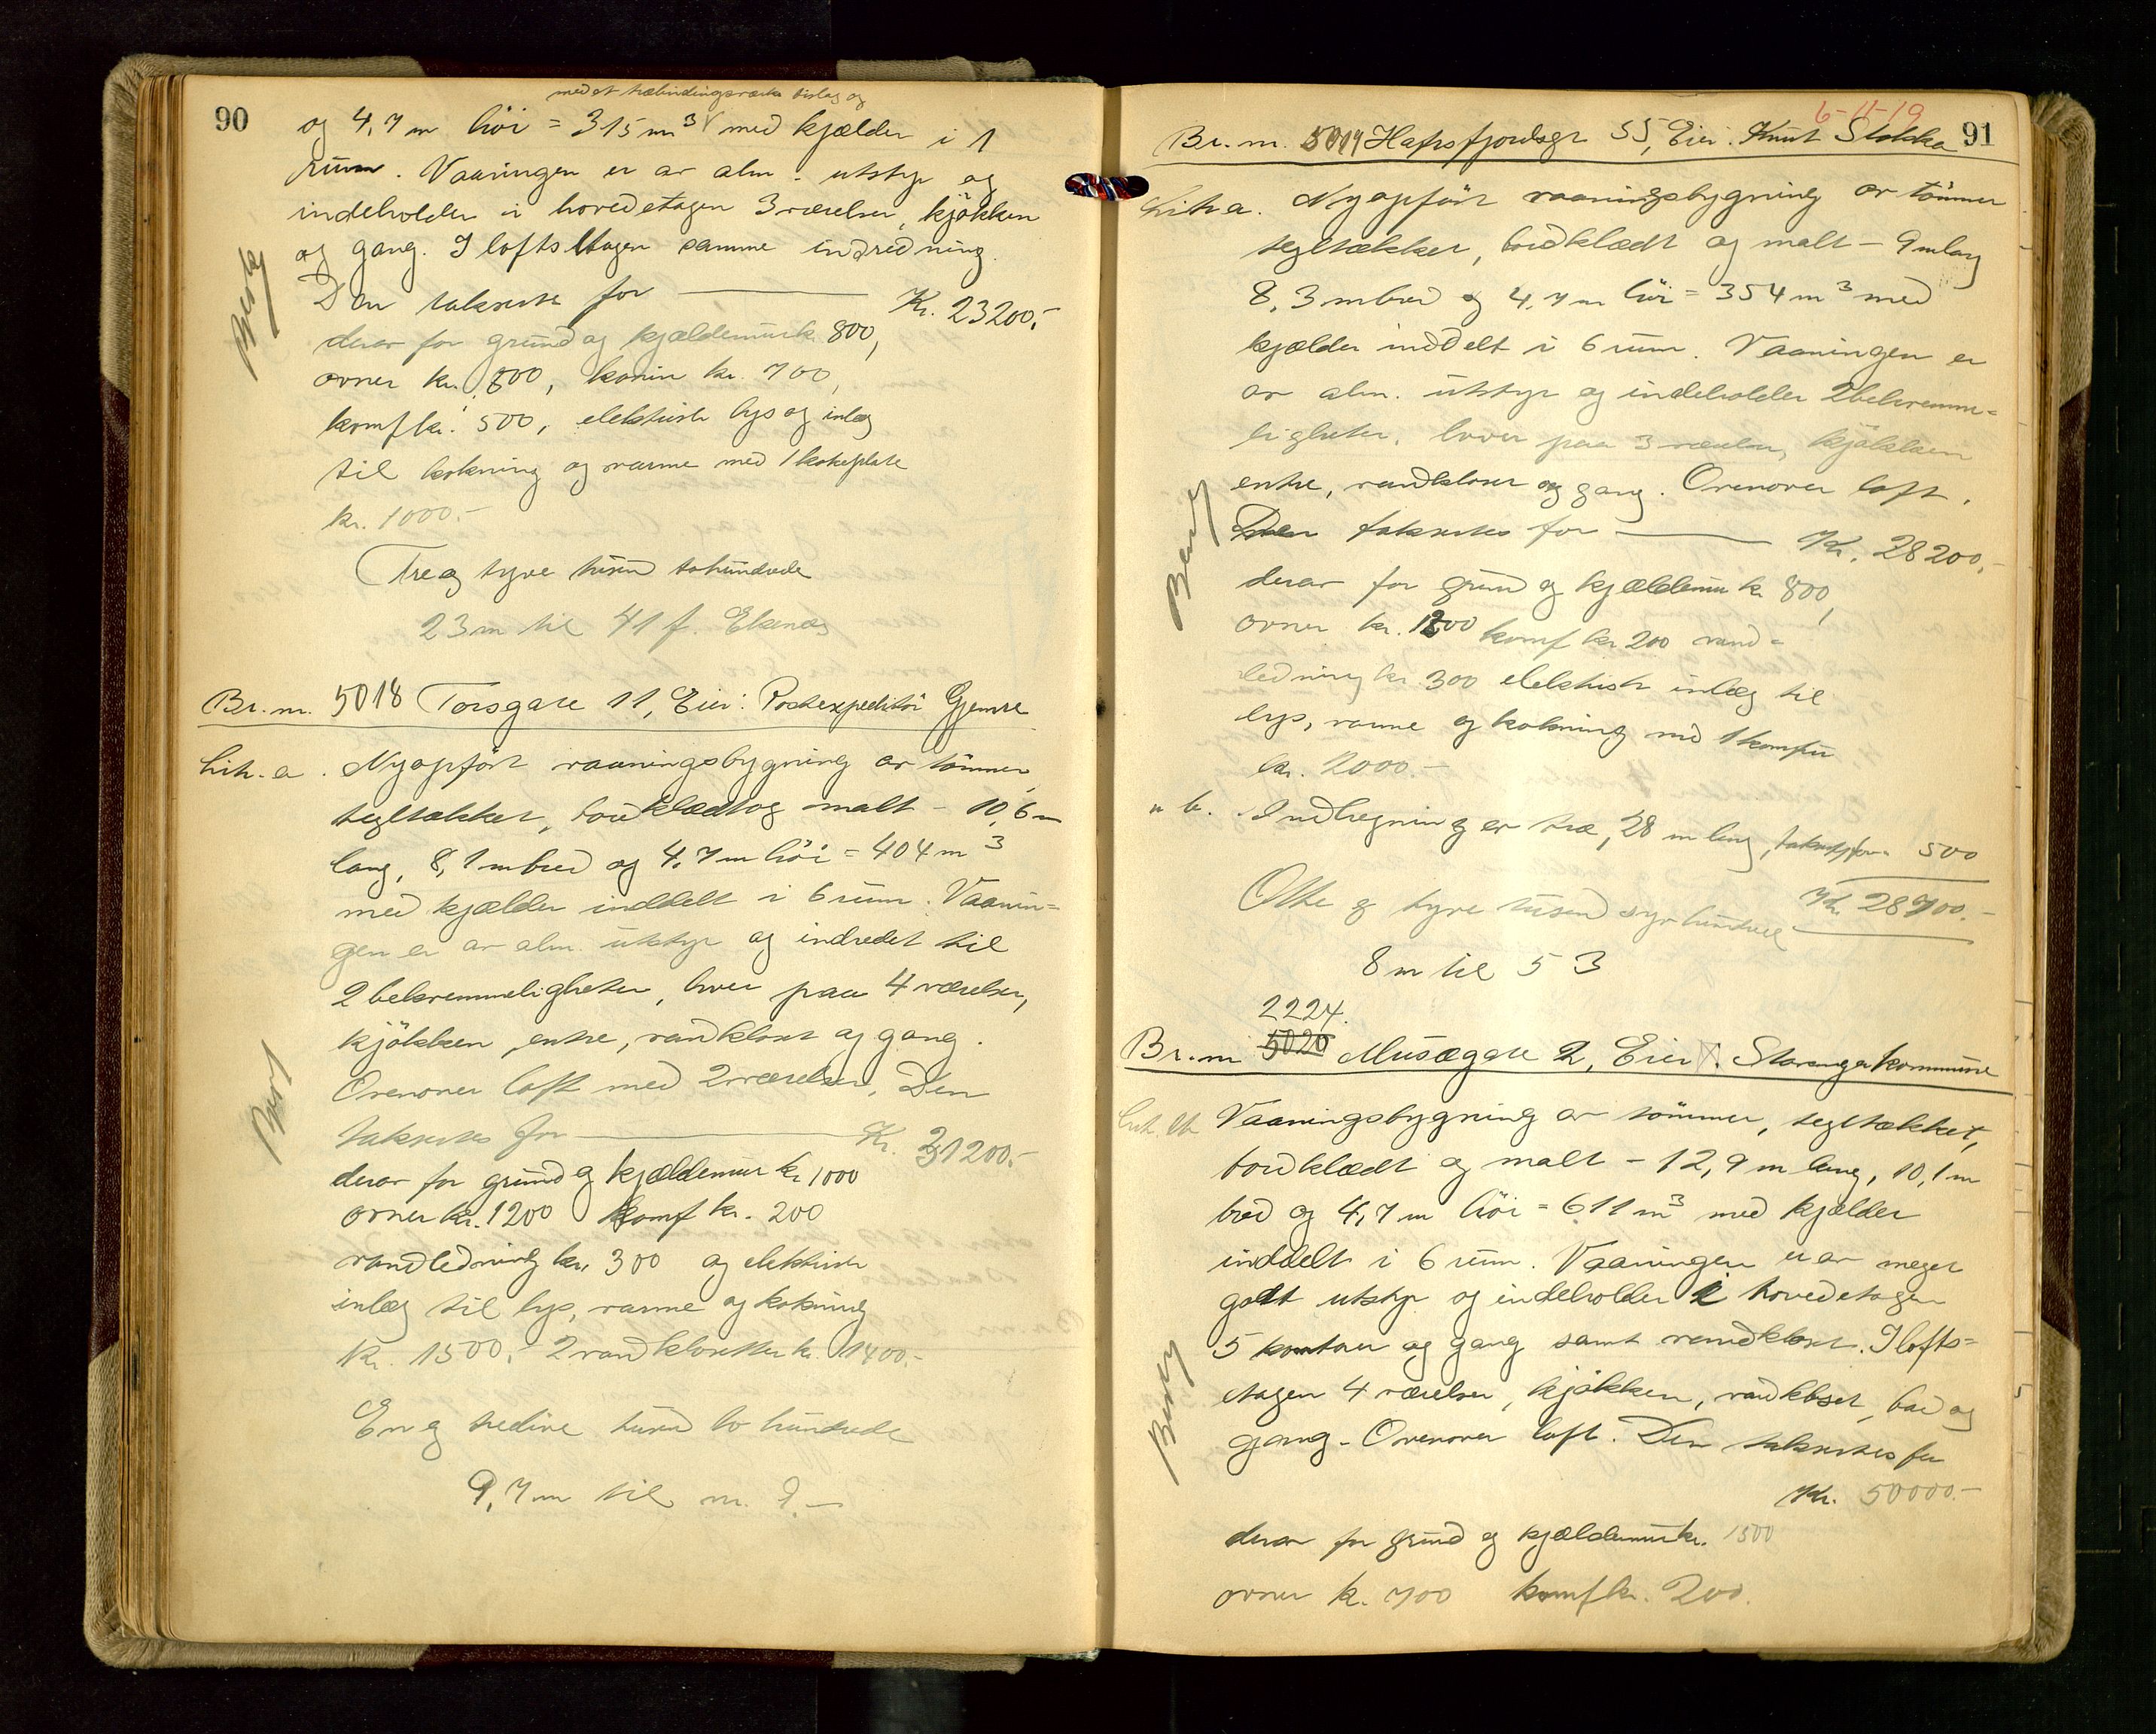 90
med et træbindingsverks tilbyg og
og 4,7 m höi = 315 m³ med kjælder i 1
rum. Vaaningen er av alm. utstyr og
indeholder i hovedetagen 3 værelser, kjökken
og gang. I loftsetagen samme indredning.
Den takseres for — Kr. 23200,-
derav for grund og kjældermur kr. 800,
ovner kr. 800, kamin kr. 700,
komf kr. 500, elektrisk lys og inlæg
til kokning og varme med 1 kokeplate
kr. 1000.-
Tre og tyve tusen tohundrede
23 m til 41 f. Ekenæs
Br. nr. 5018 Torsgate 11, Eier: Postexpeditör Gjemre
Litr. a. Nyopfört vaaningsbygning av tömmer,
tegltækket, bordklædt og malt - 10,6 m
lang, 8,1 m bred og 4,7 m höi = 404 m³
med kjælder inddelt i 6 rum. Vaanin-
gen er av alm. utstyr og indredet til
2 bekvemmeligheter, hver paa 4 værelser,
kjökken, entre, vandkloset og gang.
Ovenover loft med 2 værelser. Den
takseres for — Kr. 31200.-
derav for grund og kjældermur kr 1000
ovner kr. 1200 komf kr. 200
vandledning kr. 300 og elektrisk
inlæg til lys, varme og kokning
kr. 1500, 2 vandklosetter kr. 1400.-
En og tredive tusen to hundrede
9,7 m til nr. 9 -
6-11-19
91
Br. nr. 5019 Hafrsfjordsgt 55, Eier: Knut Stokka
Litr. a. Nyopfört vaaningsbygning av tömmer
tegltækket, bordklædt og malt - 9 m lang
8,3 m bred og 4,7 m höi = 354 m³ med
kjælder inddelt i 6 rum. Vaaningen er
av alm. utstyr og indeholder 2 bekvemme-
ligheter, hver paa 3 værelser, kjökken
entre, vandkloset og gang. Ovenover loft.
Den takseres for — Kr. 28200.-
derav for grund og kjældermur kr 800,
ovner kr. 1200 komf kr 200 vand-
ledning kr. 300 elektrisk inlæg til
lys, varme og kokning med 1 komfur
kr. 2000.-
" b. Indhegning av træ, 28 m lang, takseres for 500
Kr. 28700.-
Otte og tyve tusen syv hundrede
8 m til 53
2224.
Br. nr 5020 Musægate 2, Eier: Stavanger kommune
Litr. a Vaaningsbygning av tömmer, tegltækket,
bordklædt og malt - 12,9 m lang, 10,1 m
bred og 4,7 m höi = 611 m³ med kjælder
inddelt i 6 rum. Vaaningen er av meget
godt utstyr og indeholder i hovedetagen
5 kontorer og gang samt vandkloset. I lofts-
etagen 4 værelser, kjökken, vandkloset, bad og
gang. Ovenover loft. Den takseres for
Kr. 50000.-
derav for grund og kjældermur kr. 1500
ovner kr. 700 komf kr. 200.